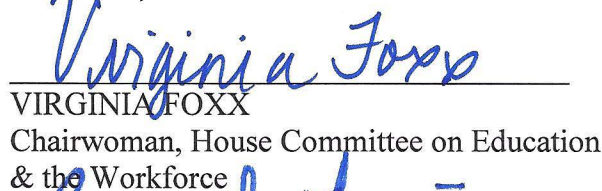 Virginia Foxx
VIRGINIA FOXX
Chairwoman, House Committee on Education
& the Workforce